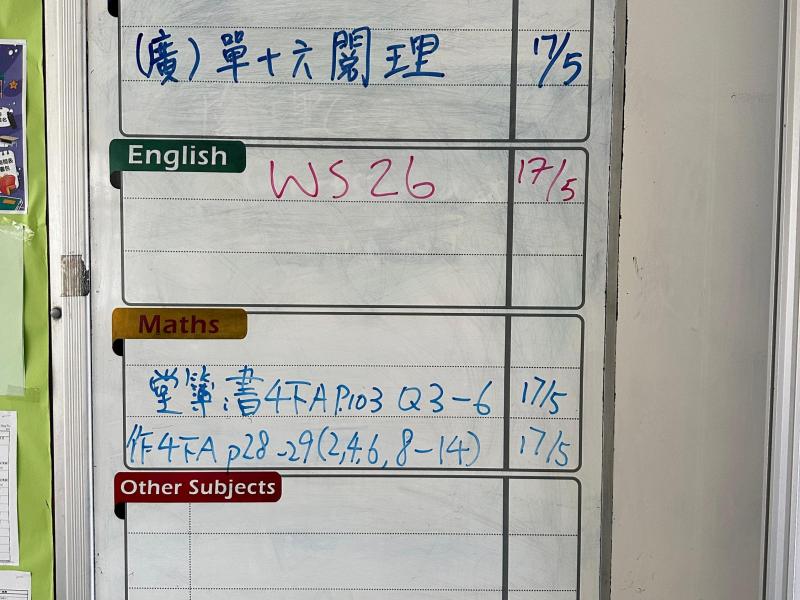 (廣) 單十六閱理 17/5
English
WS 26 17/5
Maths
堂簿:書4下A P.103 Q3-6 17/5
作4下A p28-29(2,4,6,8-14) 17/5
Other Subjects